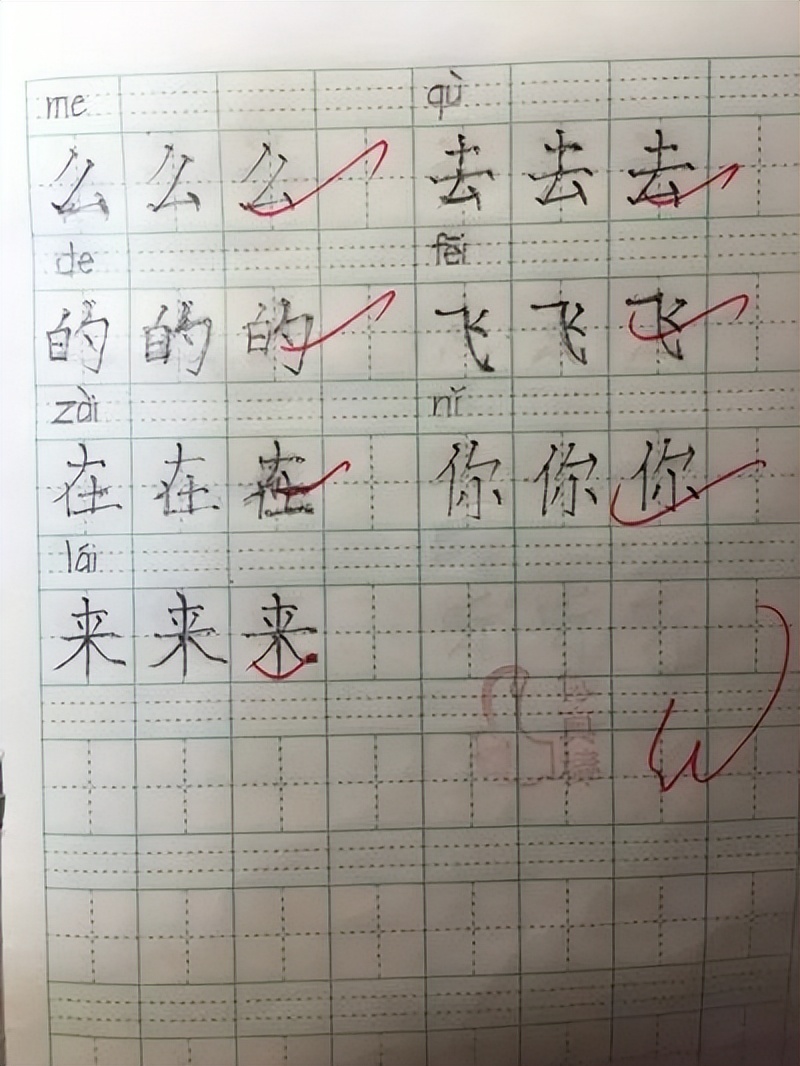 me qù
么 么 么 去 去 去
de fēi
的 的 的 飞 飞 飞
zài nǐ
在 在 在 你 你 你
lái
来 来 来